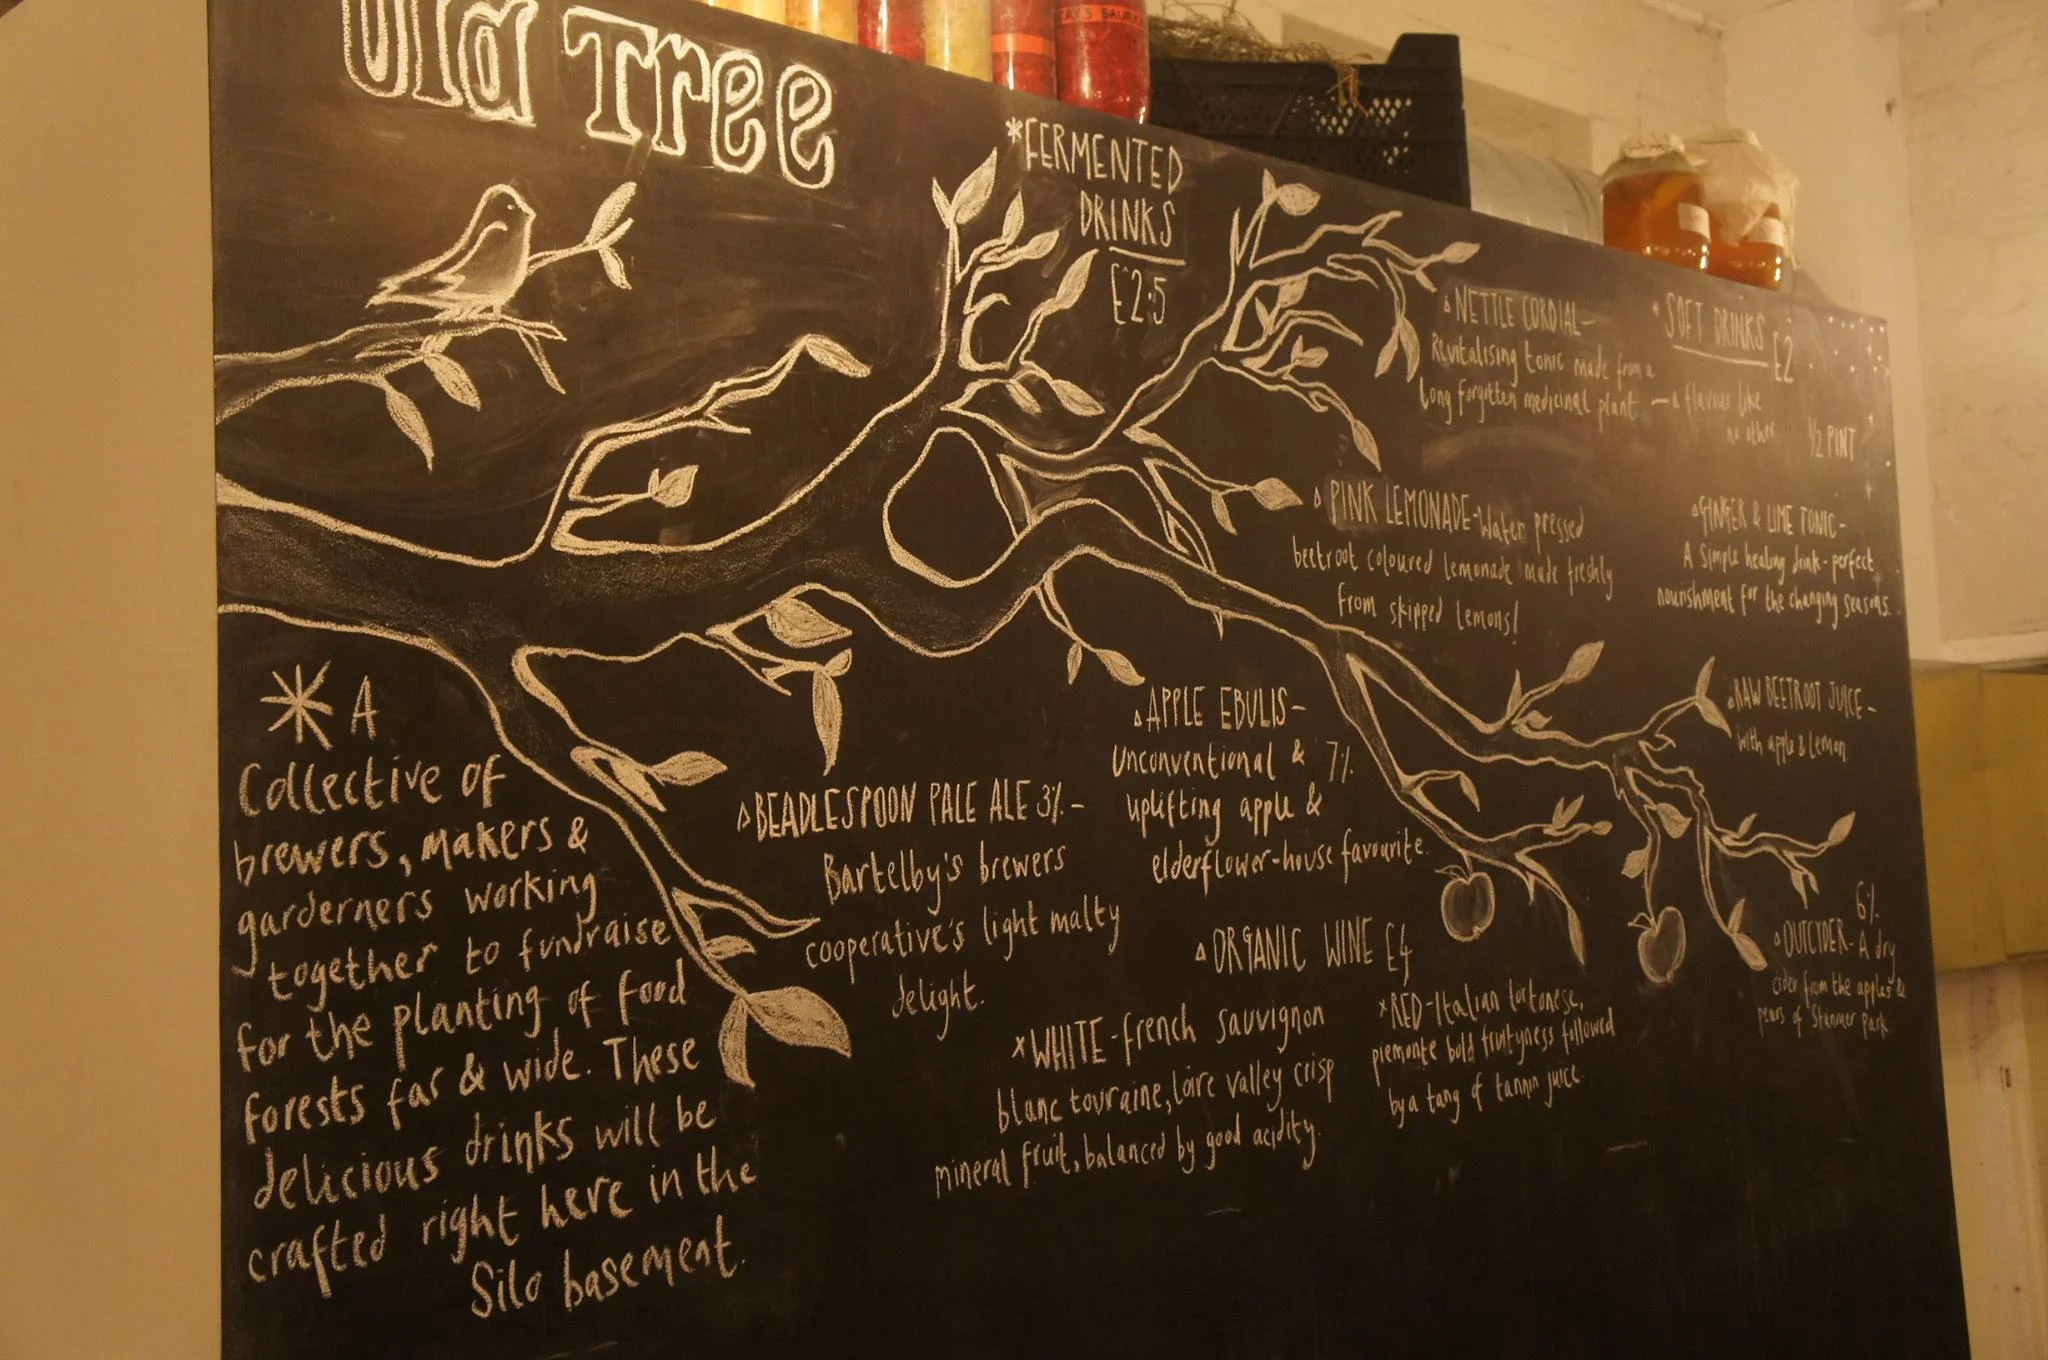 Old Tree
*FERMENTED
DRINKS
£2.5
NETTLE CORDIAL-
Revitalising tonic made from a
long forgotten medicinal plant - a flavour like
no other
* SOFT DRINKS
£2
1/2 PINT
PINK LEMONADE-Water pressed
beetroot coloured lemonade made freshly
from skipped lemons!
GINGER & LIME TONIC-
A simple healing drink-perfect
nourishment for the changing seasons.
RAW BEETROOT JUICE-
with apple & lemon
* A
Collective of
brewers, makers &
garderners working
together to fundraise
for the planting of food
forests far & wide. These
delicious drinks will be
crafted right here in the
Silo basement.
BEADLESPOON PALE ALE 3%-
Bartelby's brewers
cooperative's light malty
delight.
APPLE EBULIS-
unconventional & 7%
uplifting apple &
elderflower-house favourite.
ORGANIC WINE £4
x WHITE-french sauvignon
blanc touraine, loire valley crisp
mineral fruit, balanced by good acidity.
x RED-Italian tortonese,
piemonte bold fruityness followed
by a tang of tannin juice.
6%
OUTCYDER-A dry
cider from the apples &
pears of Stanmer Park